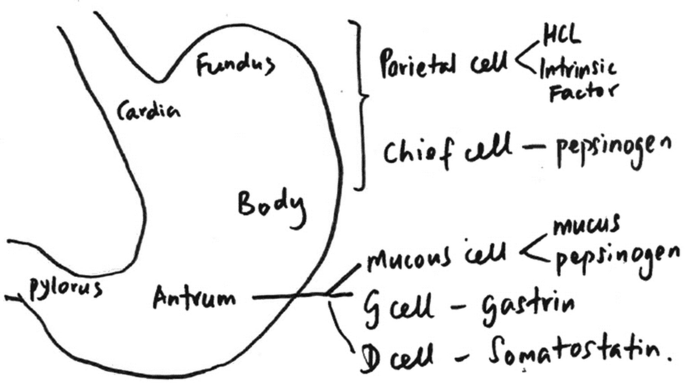 Fundus
Cardia
Body
Pylorus
Antrum
Parietal cell
HCL
Intrinsic
Factor
Chief cell - pepsinogen
Mucous cell
mucus
pepsinogen
G cell - gastrin
D cell - Somatostatin.